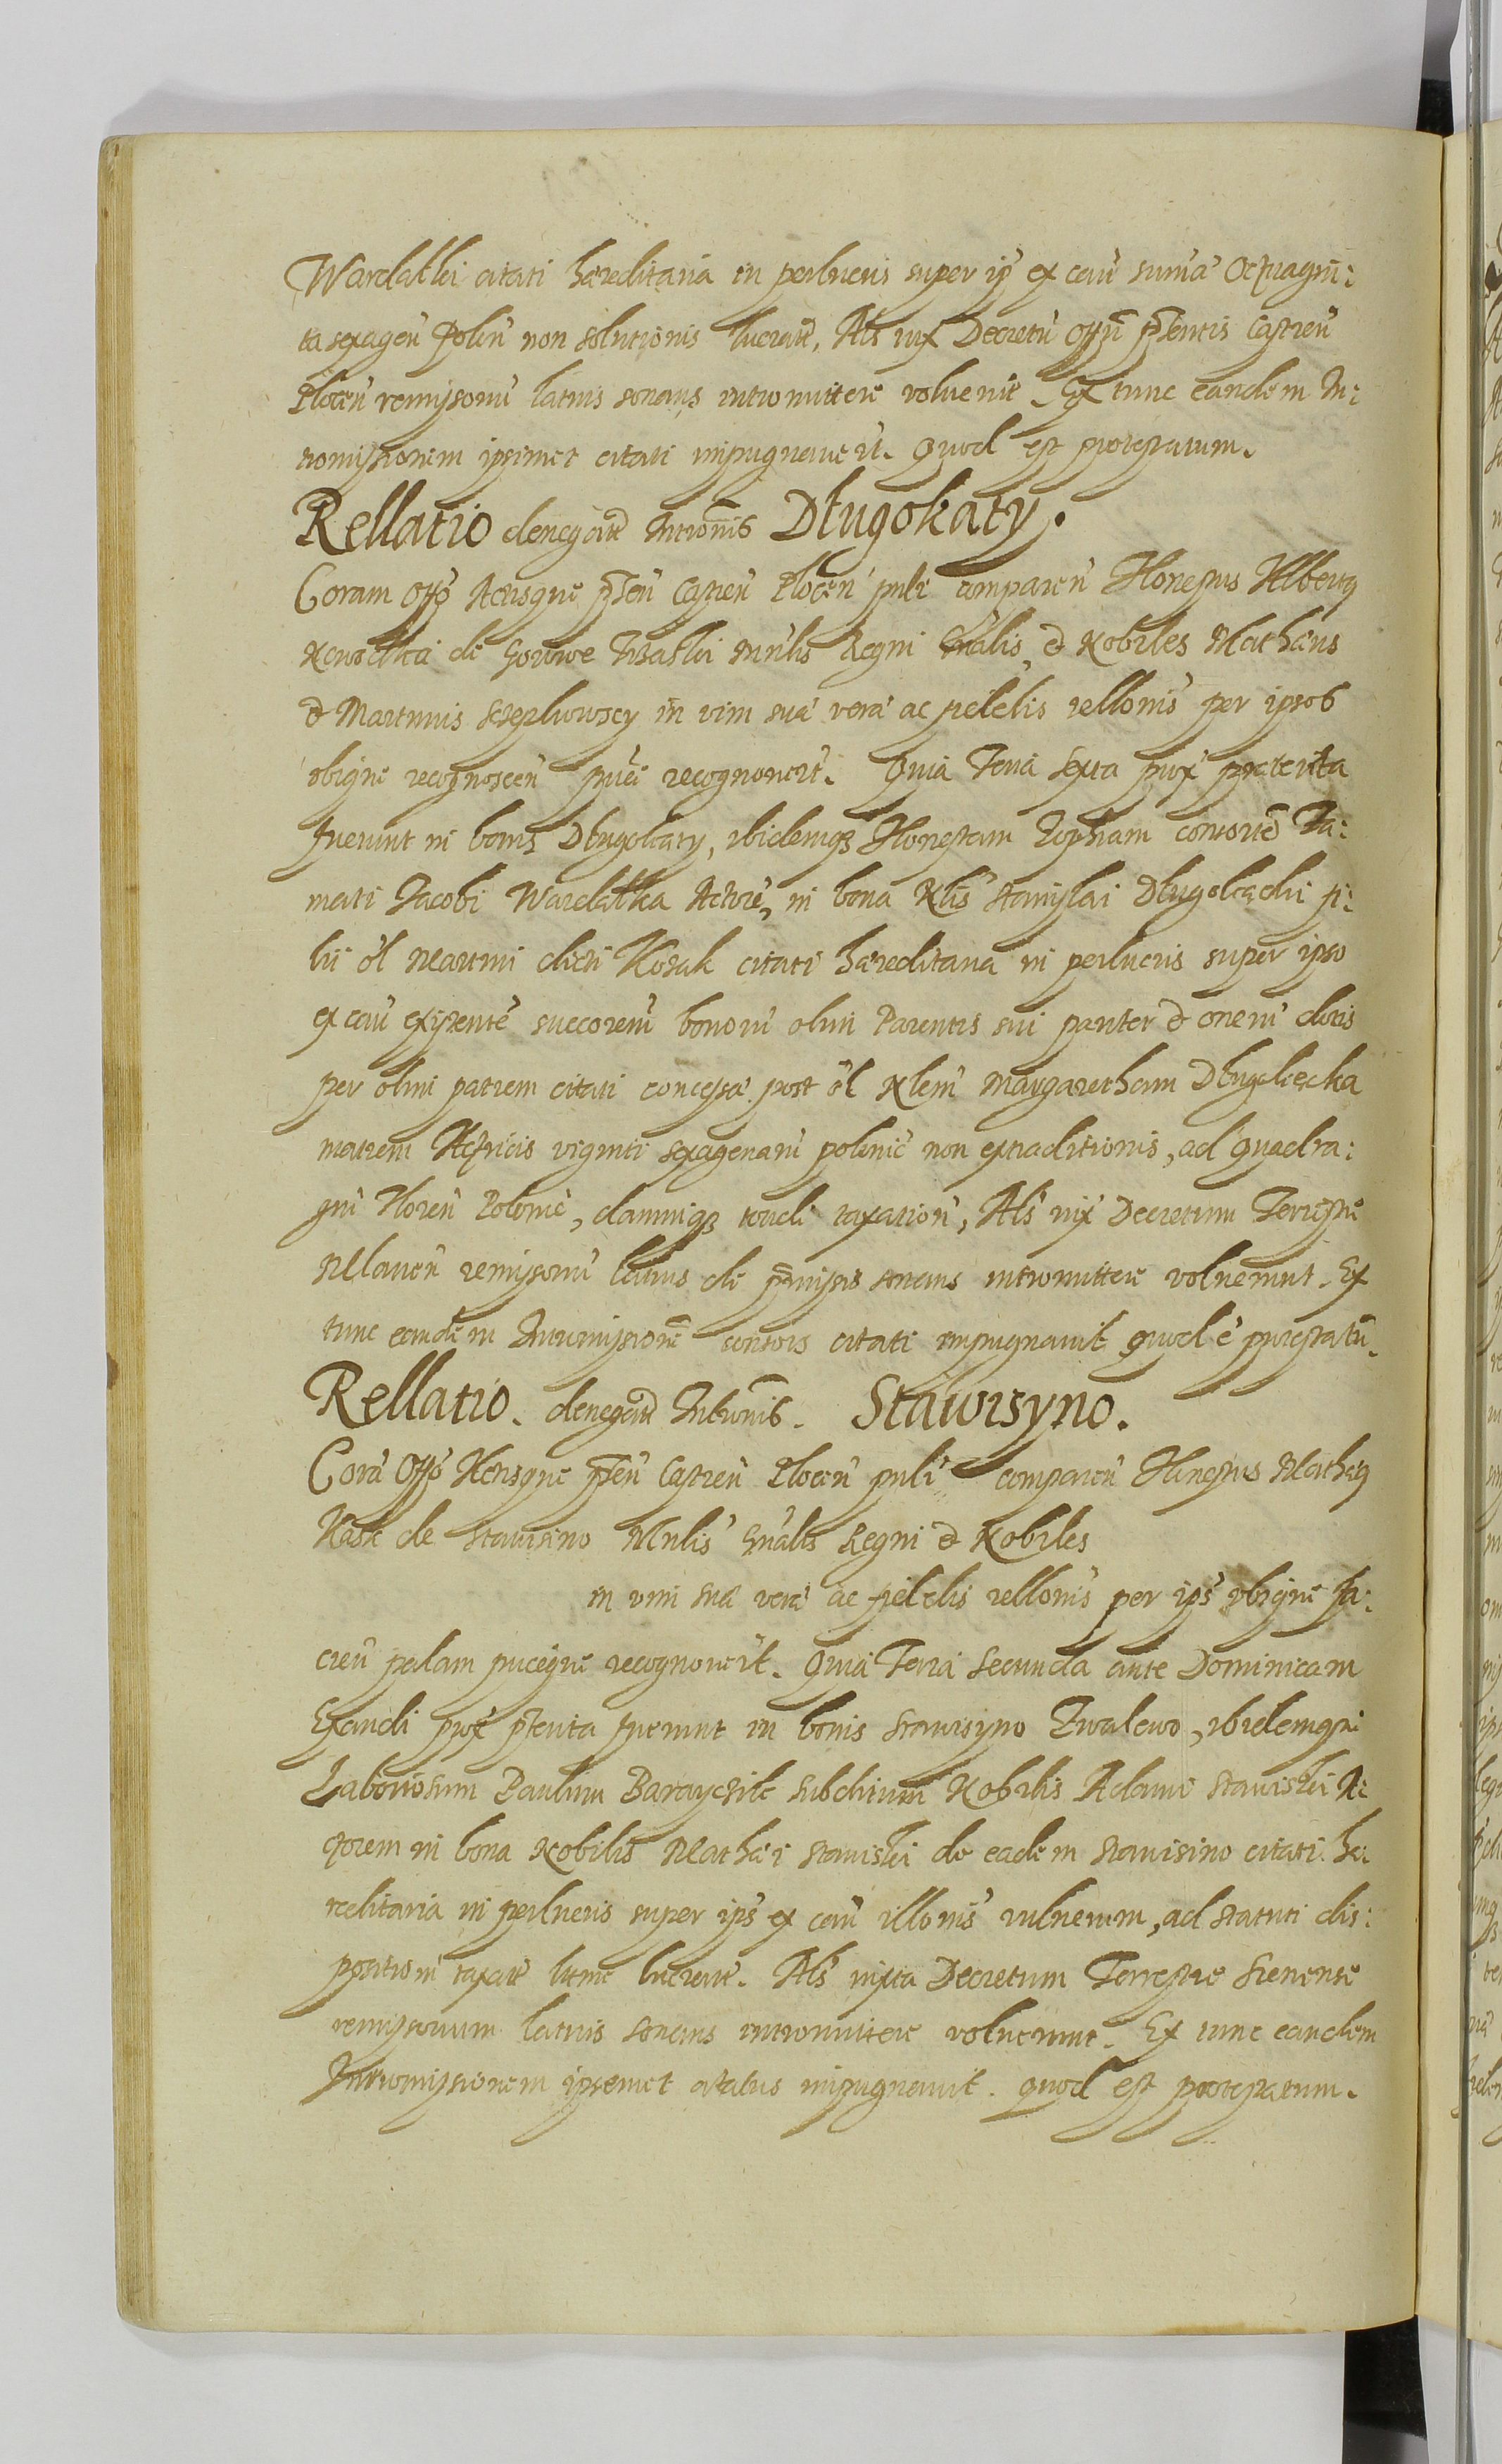 Wardathi citati hæreditaria in perlucris super ip̃ ex cau sum̃a Octuagin:
ta sexagen̄ polin̄ non solutionis lucrat̃, Als iux Decretũ Offy p̃sentis Castren̄
Plocen̄ remissoriũ latius sonans intromittere voluerũt. Ex tunc eandem In:
tromissionem ipsimet citati impugnauerũt. Quod est protestatum.
Rellatio denegat̃ Introm̃is Długokąty.
Coram Offo Actisque p̃sen̄ Castren̄ Plocen̄ pulr comparen̄ Honestus Albertꝯ
de Mnr̃lis Regni Gñalis, & Nobiles Mathæus
& Martinus in vim suã verã ac fidelis rellonis per ipsos
ibique recognoscen̄ pulcè recognouerũt. Quia Feria sexta prox̃ præterita
fuerunt in bonis Długokąty, ibidemqꝫ Honestam Zophiam consortẽ Fa:
mati Jacobi Wardathka Actorẽ, in bona Nlis Stanislai Długokącki fi:
lii ol Martini dicti Kozak citati hæreditaria in perlucris super ipso
ex cau existentẽ successorem bonorũ olim Parentis sui pariter & onerũ dotis
per olim patrem citati concessæ post ol Nlem Margaretham Długokęcka
matrem Actricis viginti sexagenarũ polinic̃ non extraditionis, ad Quadra:
gin̄ Floren̄ Polonic̃, damniqꝫ totidẽ taxation̄, Als iux̃ Decretum Terrestre
Mlauen̄ remissoriũ latius de p̃missis sonans intromittere voluerunt. Ex
tunc eandem Intromissionẽ consors citati impugnauit quod ẽ protestatũ.
Rellatio. denegat̃ Introm̃is. Stawisyno.
Corã Offo Actisque p̃sen̄ Castren̄ Plocen̄ pulr comparen̄ Honestus Mathꝯ
Kask de Stawisino Mnr̃lis Gñalis Regni & Nobiles
in vim suæ veræ ac fidelis rellonis per ipꝰ ibique fa:
cien̄ palam puceque recognouerũt. Quia Feria Secunda ante Dominicam
Exaudi prox̃ p̃terita fuerunt in bonis Stawisyno Zwalewo, ibidemque
Laboriosum Paulum subditum Nobilis Adami Stawiski A:
ctorem in bona Nobilis Mathæi Stawiski de eadem Stawisino citati hæ:
reditaria in perlucris super ipꝰ ex cau illonis vulnerum, ad statuti dis:
positioni taxat̃ lucrat̃. Als iuxta Decretum Terrestre Srenense
remissorium latius sonans intromittere voluerunt. Ex tunc eandem
Intromissionem ipsemet citatus impugnauit. quod est protestatum.